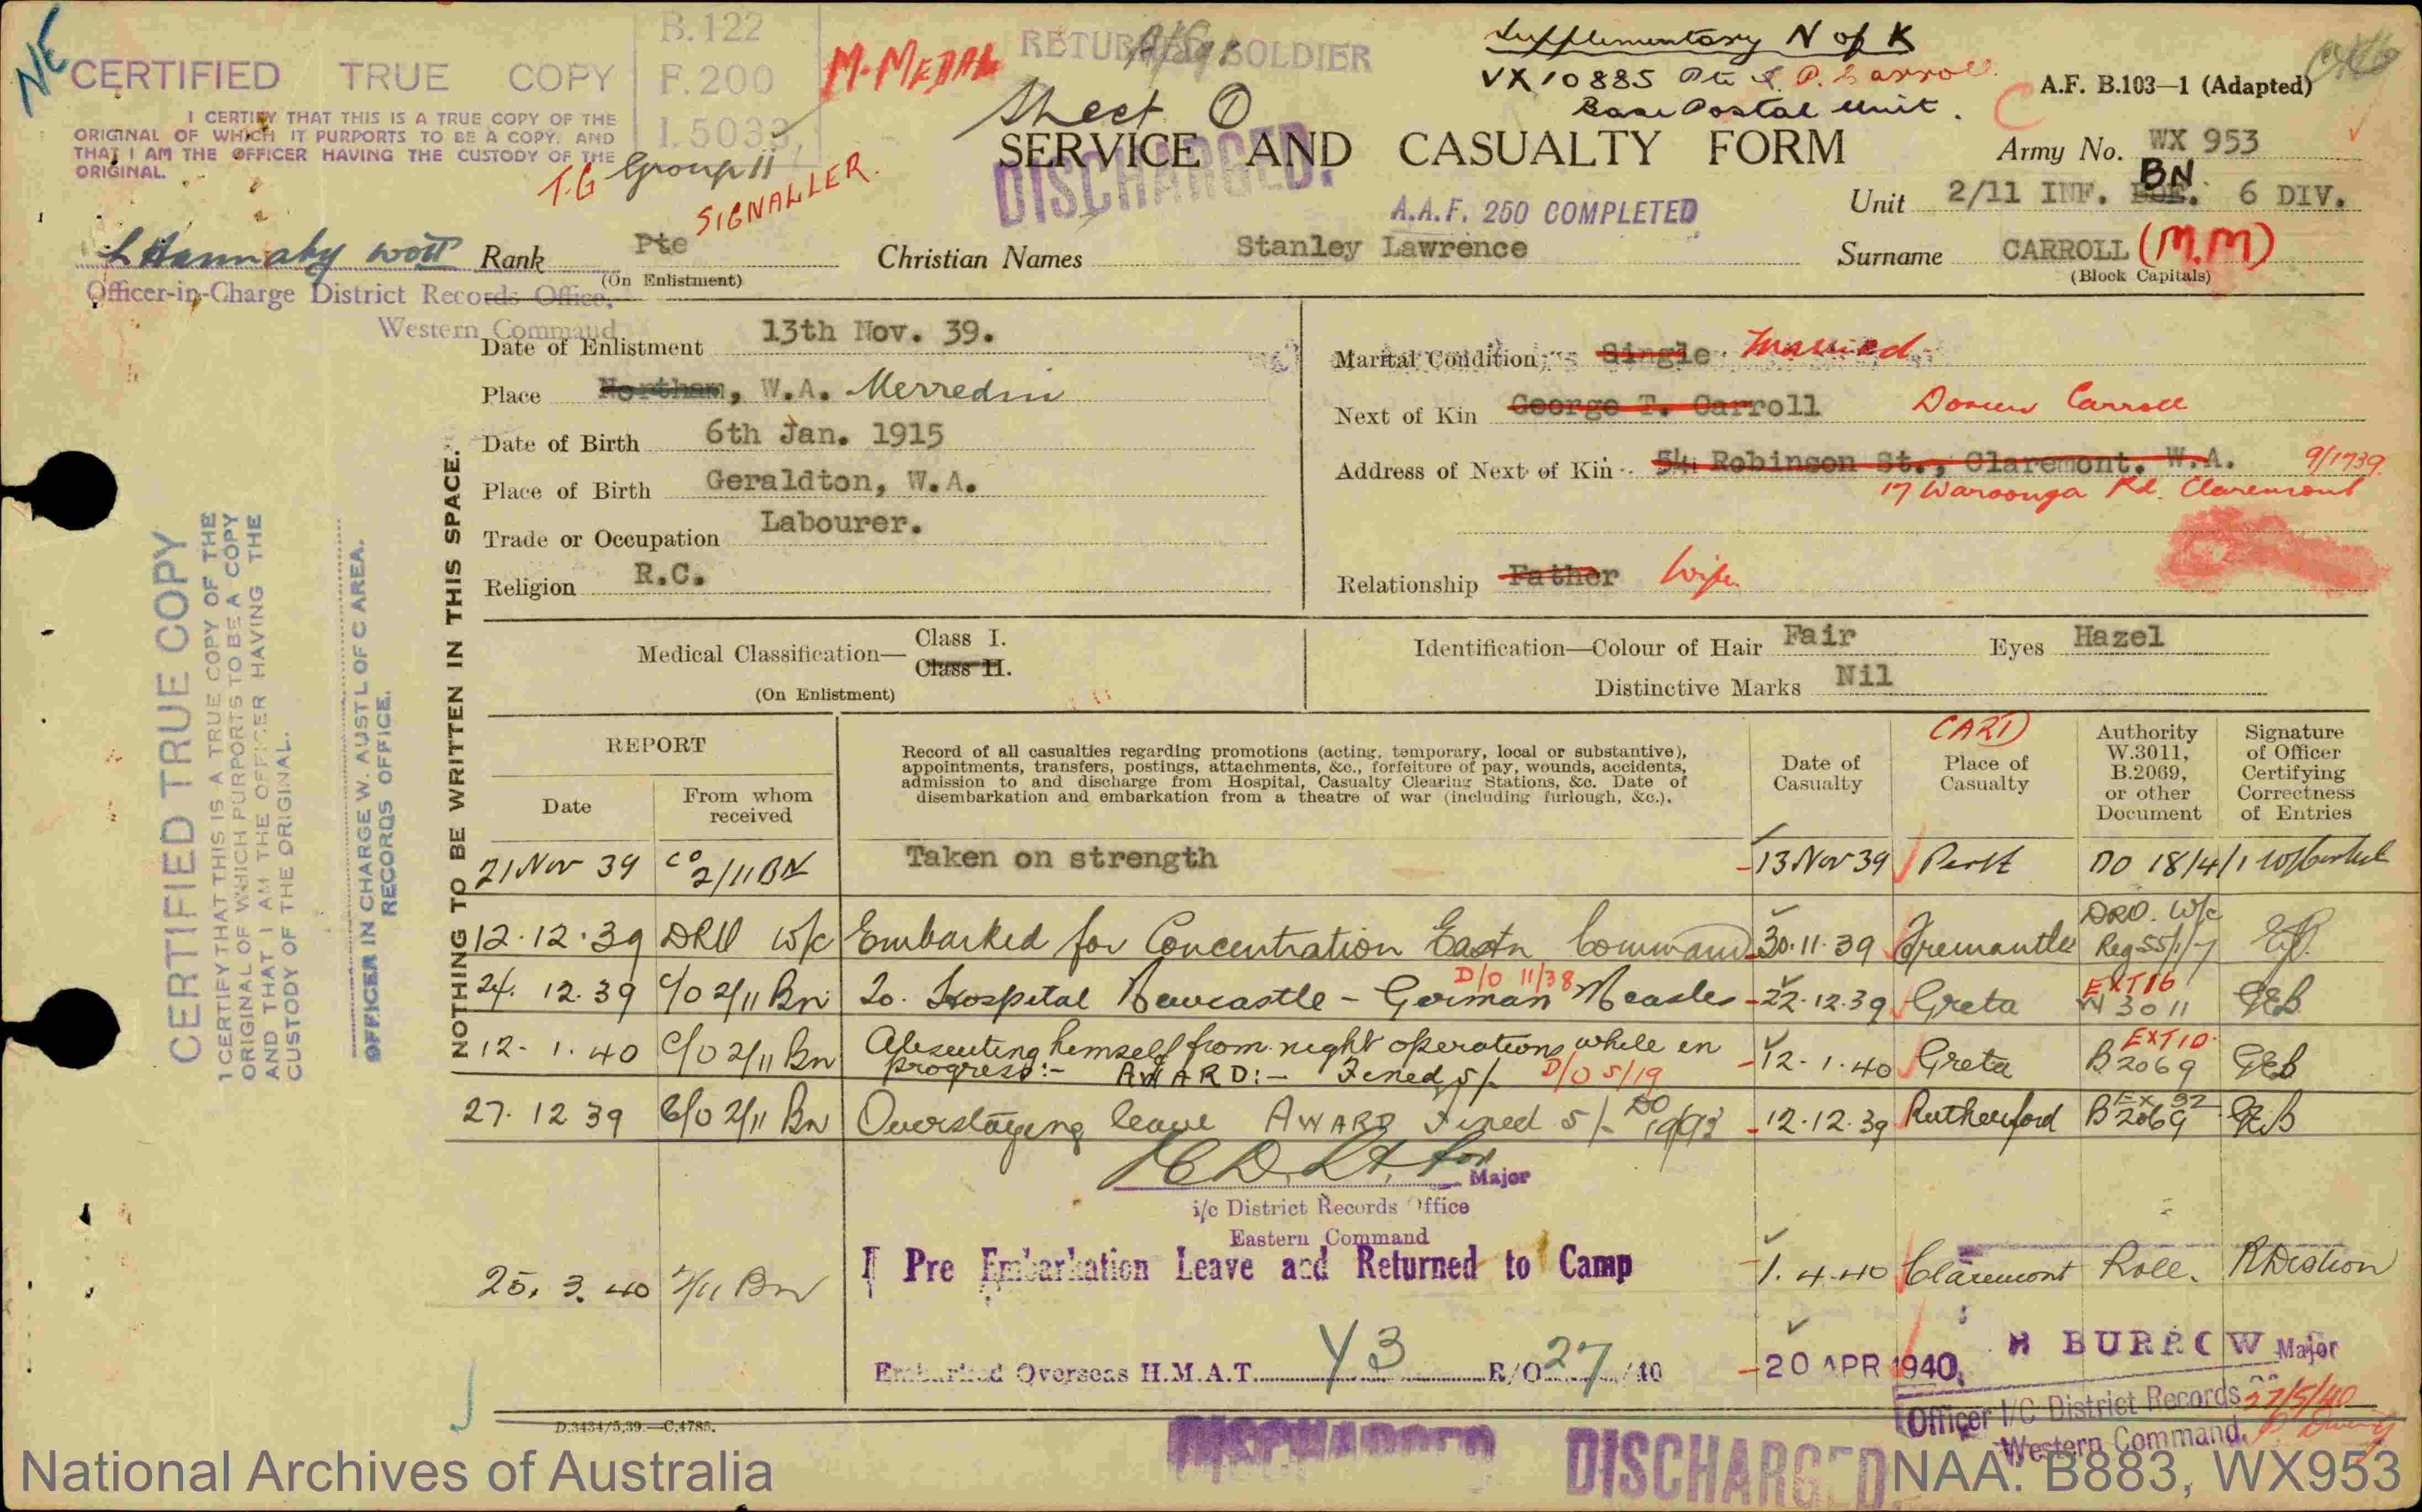 NE
CERTIFIED TRUE COPY
I CERTIFY THAT THIS IS A TRUE COPY OF THE
ORIGINAL OF WHICH IT PURPORTS TO BE A COPY, AND
THAT I AM THE OFFICER HAVING THE CUSTODY OF THE
ORIGINAL.
B.122
F.200
I.5033
M. MEDAL
RETURNED SOLDIER
Sheet 1
Supplementary N of K
VX10885 Pte P. Carroll
Base Postal Unit.
A.F. B.103—1 (Adapted)
T.G Group 11
SIGNALLER.
SERVICE AND CASUALTY FORM
DISCHARGED.
A.A.F. 250 COMPLETED
Army No. WX 953
Unit 2/11 INF. BN 6 DIV.
Rank Pte
(On Enlistment)
Christian Names Stanley Lawrence
Surname CARROLL (M.M)
(Block Capitals)
Officer-in-Charge District Records Office,
Western Command
Date of Enlistment 13th Nov. 39.
Place Northam, W.A. Merredin
Date of Birth 6th Jan. 1915
Place of Birth Geraldton, W.A.
Trade or Occupation Labourer.
Religion R.C.
Marital Condition Single Married
Next of Kin George T. Carroll Doreen Carroll
Address of Next of Kin 54 Robinson St., Claremont. W.A. 9/1739
17 Waroonga Rd. Claremont
Relationship Father Wife
Medical Classification— Class I.
Class II.
(On Enlistment)
Identification—Colour of Hair Fair Eyes Hazel
Distinctive Marks Nil
NOTHING TO BE WRITTEN IN THIS SPACE.
CERTIFIED TRUE COPY
I CERTIFY THAT THIS IS A TRUE COPY OF THE
ORIGINAL OF WHICH PURPORTS TO BE A COPY
AND THAT I AM THE OFFICER HAVING THE
CUSTODY OF THE ORIGINAL.
OFFICER IN CHARGE W. AUST L OF C AREA.
RECORDS OFFICE.
REPORT
Date
From whom received
Record of all casualties regarding promotions (acting, temporary, local or substantive),
appointments, transfers, postings, attachments, &c., forfeiture of pay, wounds, accidents,
admission to and discharge from Hospital, Casualty Clearing Stations, &c. Date of
disembarkation and embarkation from a theatre of war (including furlough, &c.).
Date of Casualty
(CART)
Place of Casualty
Authority W.3011, B.2069, or other Document
Signature of Officer Certifying Correctness of Entries
21 Nov 39 CO 2/11 BN Taken on strength 13 Nov 39 Perth DO 18/4/1
12.12.39 DRO W/C Embarked for Concentration Eastn Command 30.11.39 Fremantle DRO. W/c Reg 55/1/7
24.12.39 C/O 2/11 Bn To Hospital Newcastle - German Measles D/O 11/38 22.12.39 Greta EXT 16 W 3011 GEB
12.1.40 C/O 2/11 Bn Absenting himself from night operations while in
progress:- AWARD:- Fined 5/- D/O 5/19 12.1.40 Greta EXT 10. B 2069 GEB
27.12.39 C/O 2/11 Bn Overstaying leave AWARD Fined 5/- DO 12.12.39 Rutherford B 2069 GEB
Major
i/c District Records Office
Eastern Command
25.3.40 2/11 Bn Pre Embarkation Leave and Returned to Camp 1.4.40 Claremont Roll.
Embarked Overseas H.M.A.T. Y3 E/O 27/40 20 APR 1940
H BURROW Major
Officer I/C District Records
Western Command.
27/5/40
D.3434/5.39.—C.4785.
DISCHARGED
DISCHARGED.
National Archives of Australia
NAA: B883, WX953